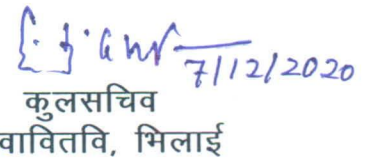 7/12/2020
कुलसचिव
वावितवि, भिलाई